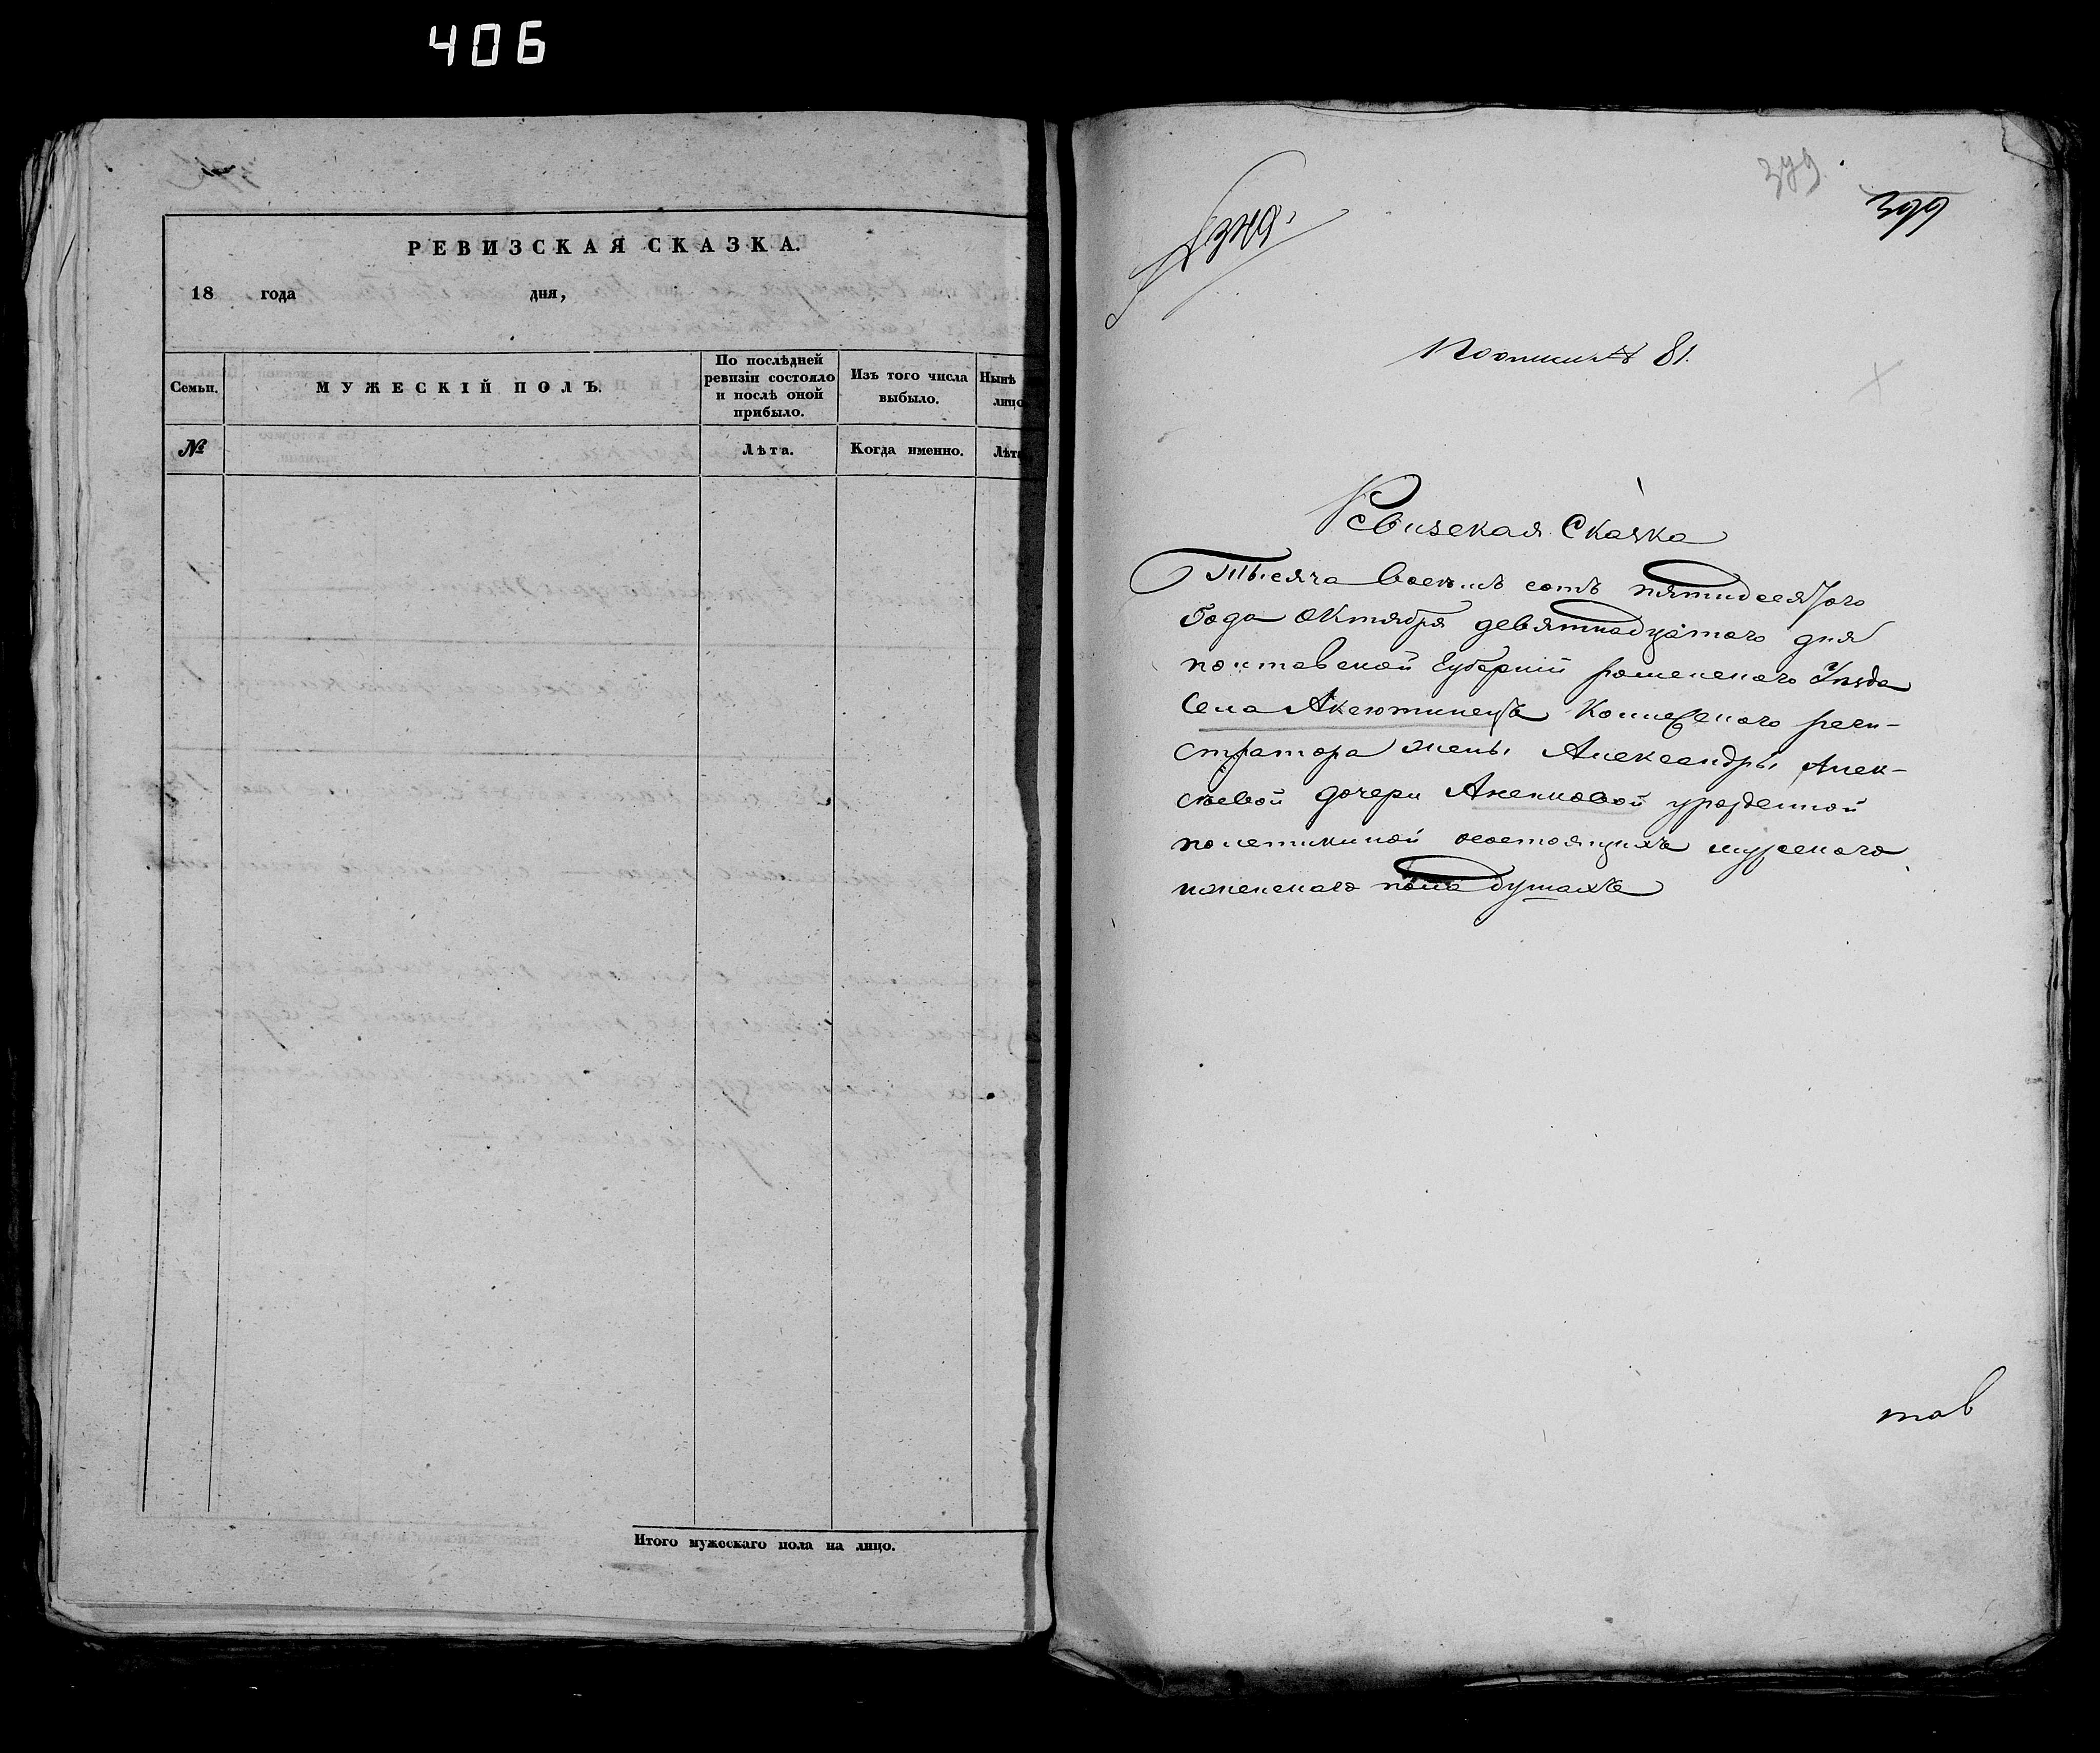 406
РЕВИЗСКАЯ СКАЗКА.
18 года дня,
Семьи.
МУЖЕСКІЙ ПОЛЪ.
По послѣдней ревизіи состояло и послѣ оной прибыло.
Изъ того числа выбыло.
Нынѣ лицо
№
Лѣта.
Когда именно.
Лѣта
Итого мужескаго пола на лицо.
379.
399
349.
81.
Ревизская Сказка
Тысяча Восемь сотъ пятидесятого
Года Октября девятнадцатого дня
полтавской Губерній роменского Уезда
Села АксютинецъКоллежского реги-
стратора жены Александры Алек-
сѣевой дочери Аненковой урожденной
полетикиной осостоящихъ мужеского
иженскаго пола душахъ
тав